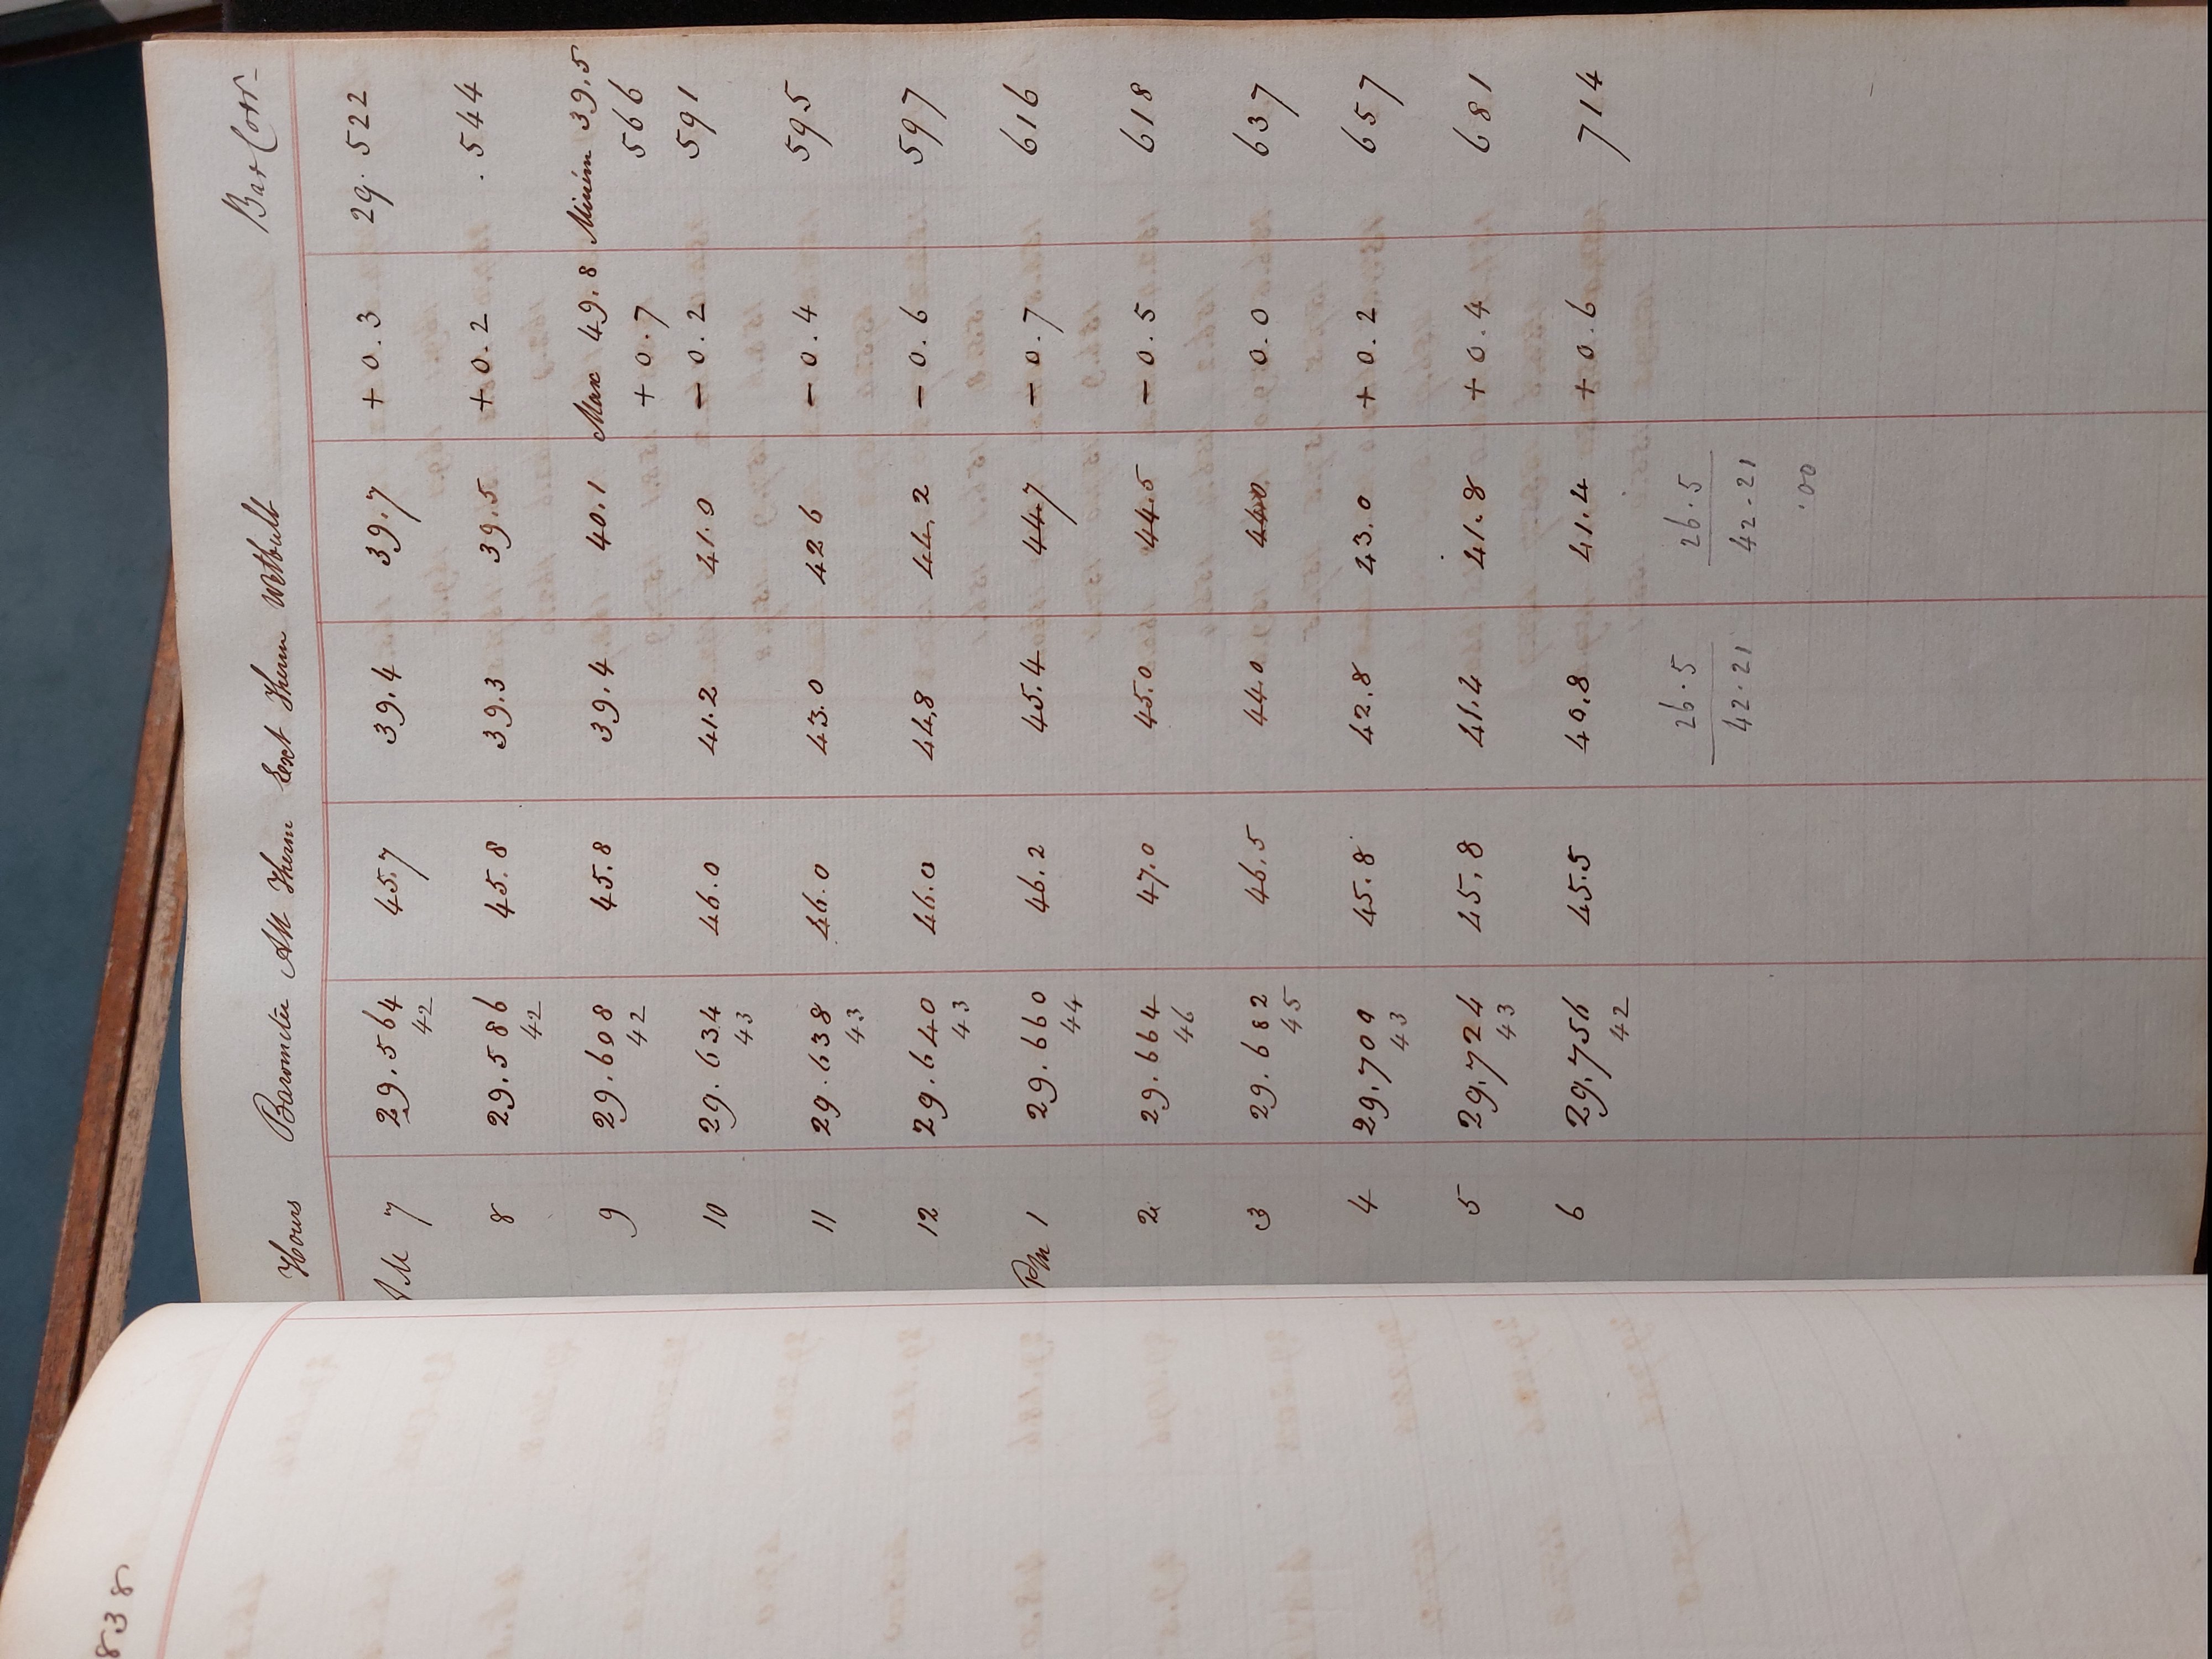 838
Hours Barometer Att Therm Ext Therm Wetbulb Bar Corr
AM 7 29.564 45.7 39.4 39.7 + 0.3 29.522
42
8 29.586 45.8 39.3 39.5 + 0.2 .544
42
9 29.608 45.8 39.4 40.1 Max 49.8 Minim 39.5
42 + 0.7 566
10 29.634 46.0 41.2 41.0 - 0.2 591
43
11 29.638 46.0 43.0 42 6 - 0.4 595
43
12 29.640 46.0 44,8 44,2 - 0.6 597
43
Pm 1 29.660 46.2 45.4 44.7 - 0.7 616
44
2 29.664 47.0 45.0 44.5 - 0.5 618
46
3 29.682 46.5 44.0 44.0 0.0 637
45
4 29.700 45.8 42.8 43.0 + 0.2 657
43
5 29.724 45.8 41.4 41.8 + 0.4 681
43
6 29.756 45.5 40.8 41.4 + 0.6 714
42
26.5 26.5
42.21 42.21
.00